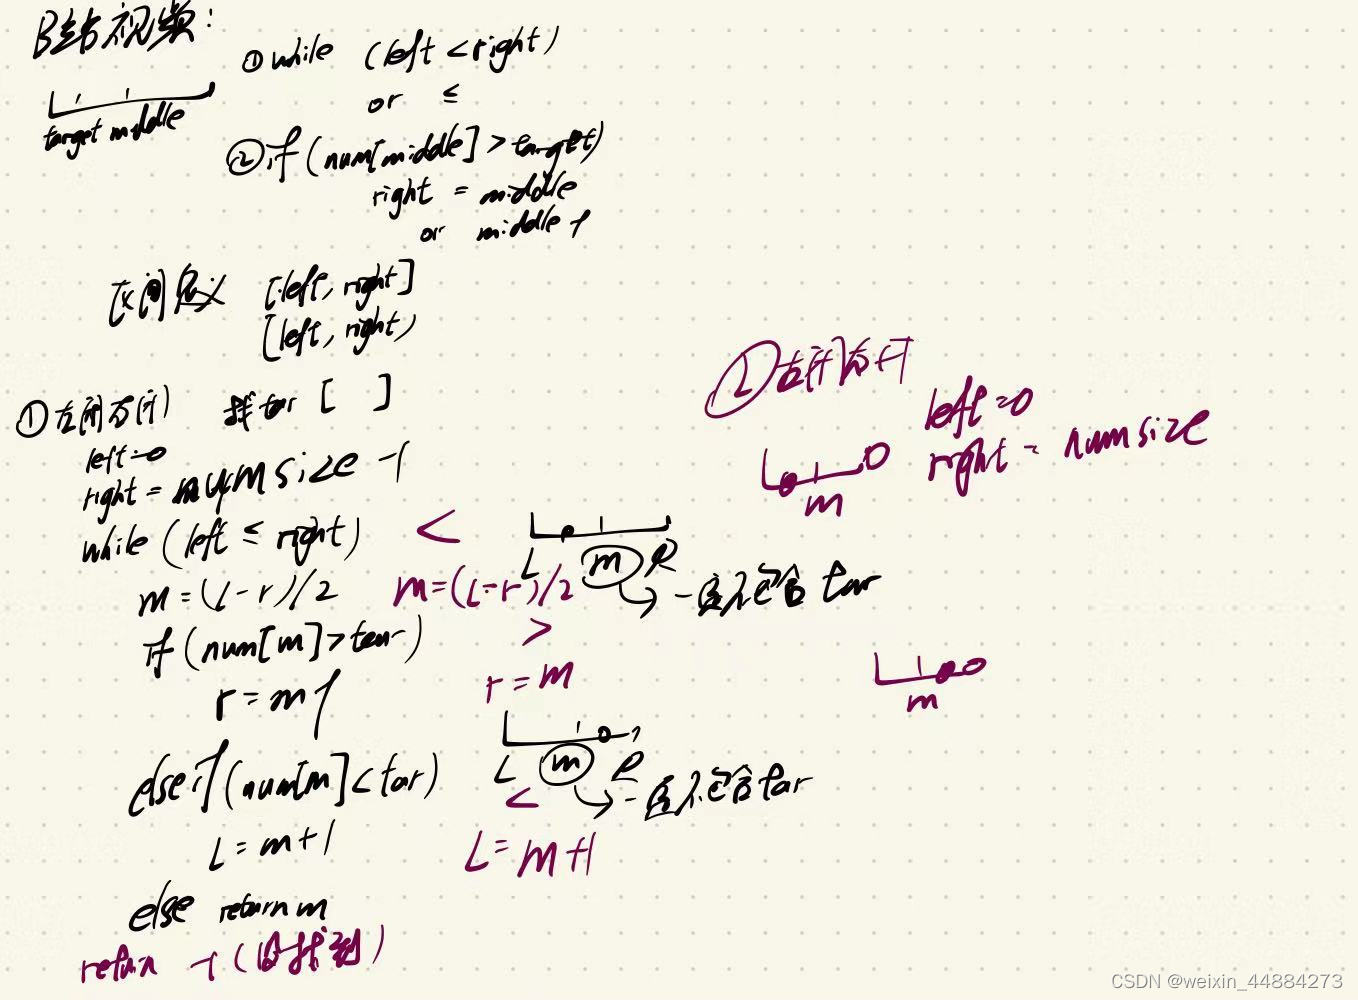 B站视频:
target middle
① while (left < right)
or ≤
② if (num[middle] > target)
right = middle
or middle -1
区间定义 [left, right]
[left, right)
① 左闭右闭 找 tar [ ]
left = 0
right = numsize -1
while (left ≤ right)
m = (L-r)/2
if (num[m] > tar)
r = m-1
else if (num[m] < tar)
L = m+1
else return m
return -1 (没找到)
<
m = (L-r)/2
>
r = m
<
L = m+1
L m R
一定不包含 tar
L m R
一定不包含 tar
② 左闭右开
left = 0
right = numsize
m
m
CSDN @weixin_44884273